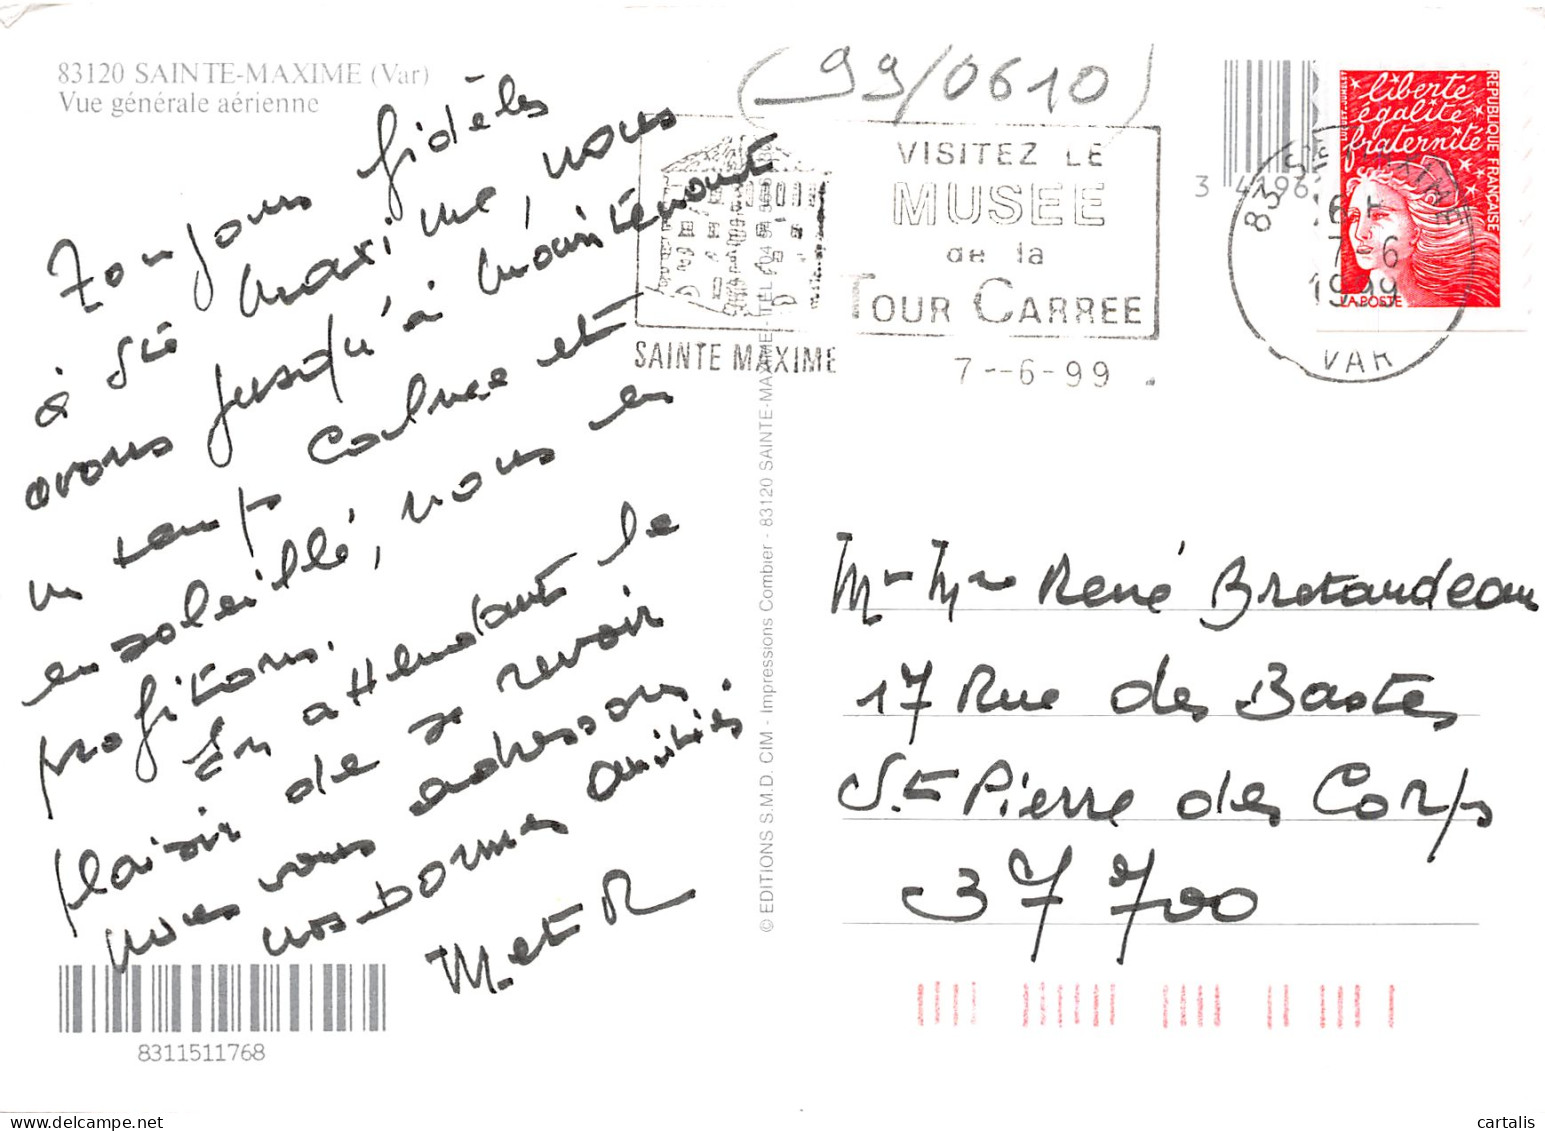 83120 SAINTE-MAXIME (Var)
Vue générale aérienne
Toujours fidèles
à Ste Maxime, nous
avons jusqu'à maintenant
un temps calme et
ensoleillé, nous en
profitons.
En attendant le
plaisir de se revoir
nous vous adressons
nos bonnes amitiés.
M. et R
8311511768
© EDITIONS S.M.D. CIM - Impressions Combier - 83120 SAINTE-MAXIME - TEL
(99/0610)
VISITEZ LE
MUSEE
de la
TOUR CARREE
SAINTE MAXIME
7--6-99
3 4796
liberté
égalité
fraternité
REPUBLIQUE FRANÇAISE
LA POSTE
83 STE MAXIME
7 6
1999
VAR
Mr Mme René Bretaudeau
17 Rue des Bastes
St Pierre des Corps
37700
cartalis